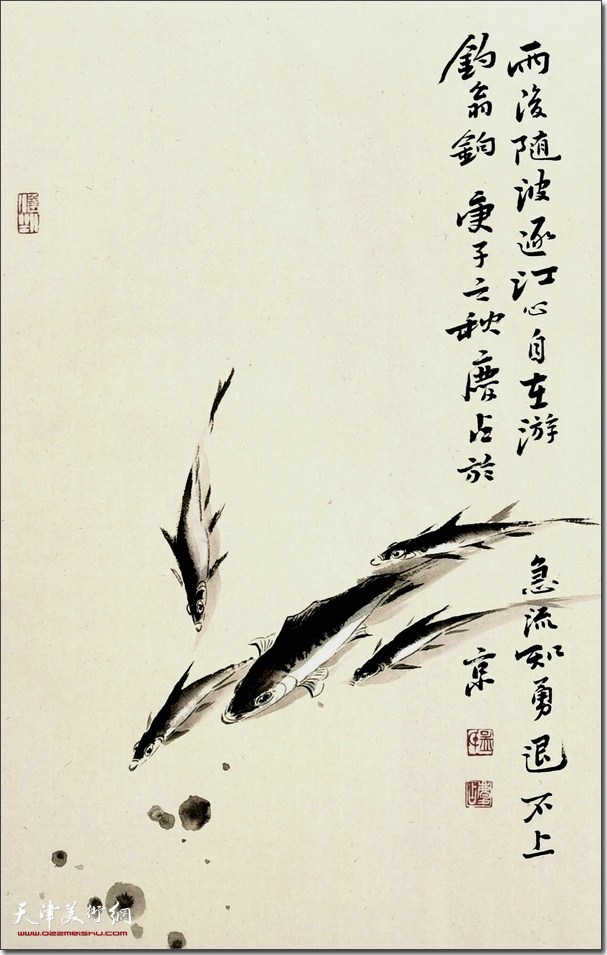 雨後随波逐江心自在游 急流知勇退不上
釣翁鉤 庚子立秋 占於 京
天津美術網
www.022meishu.com